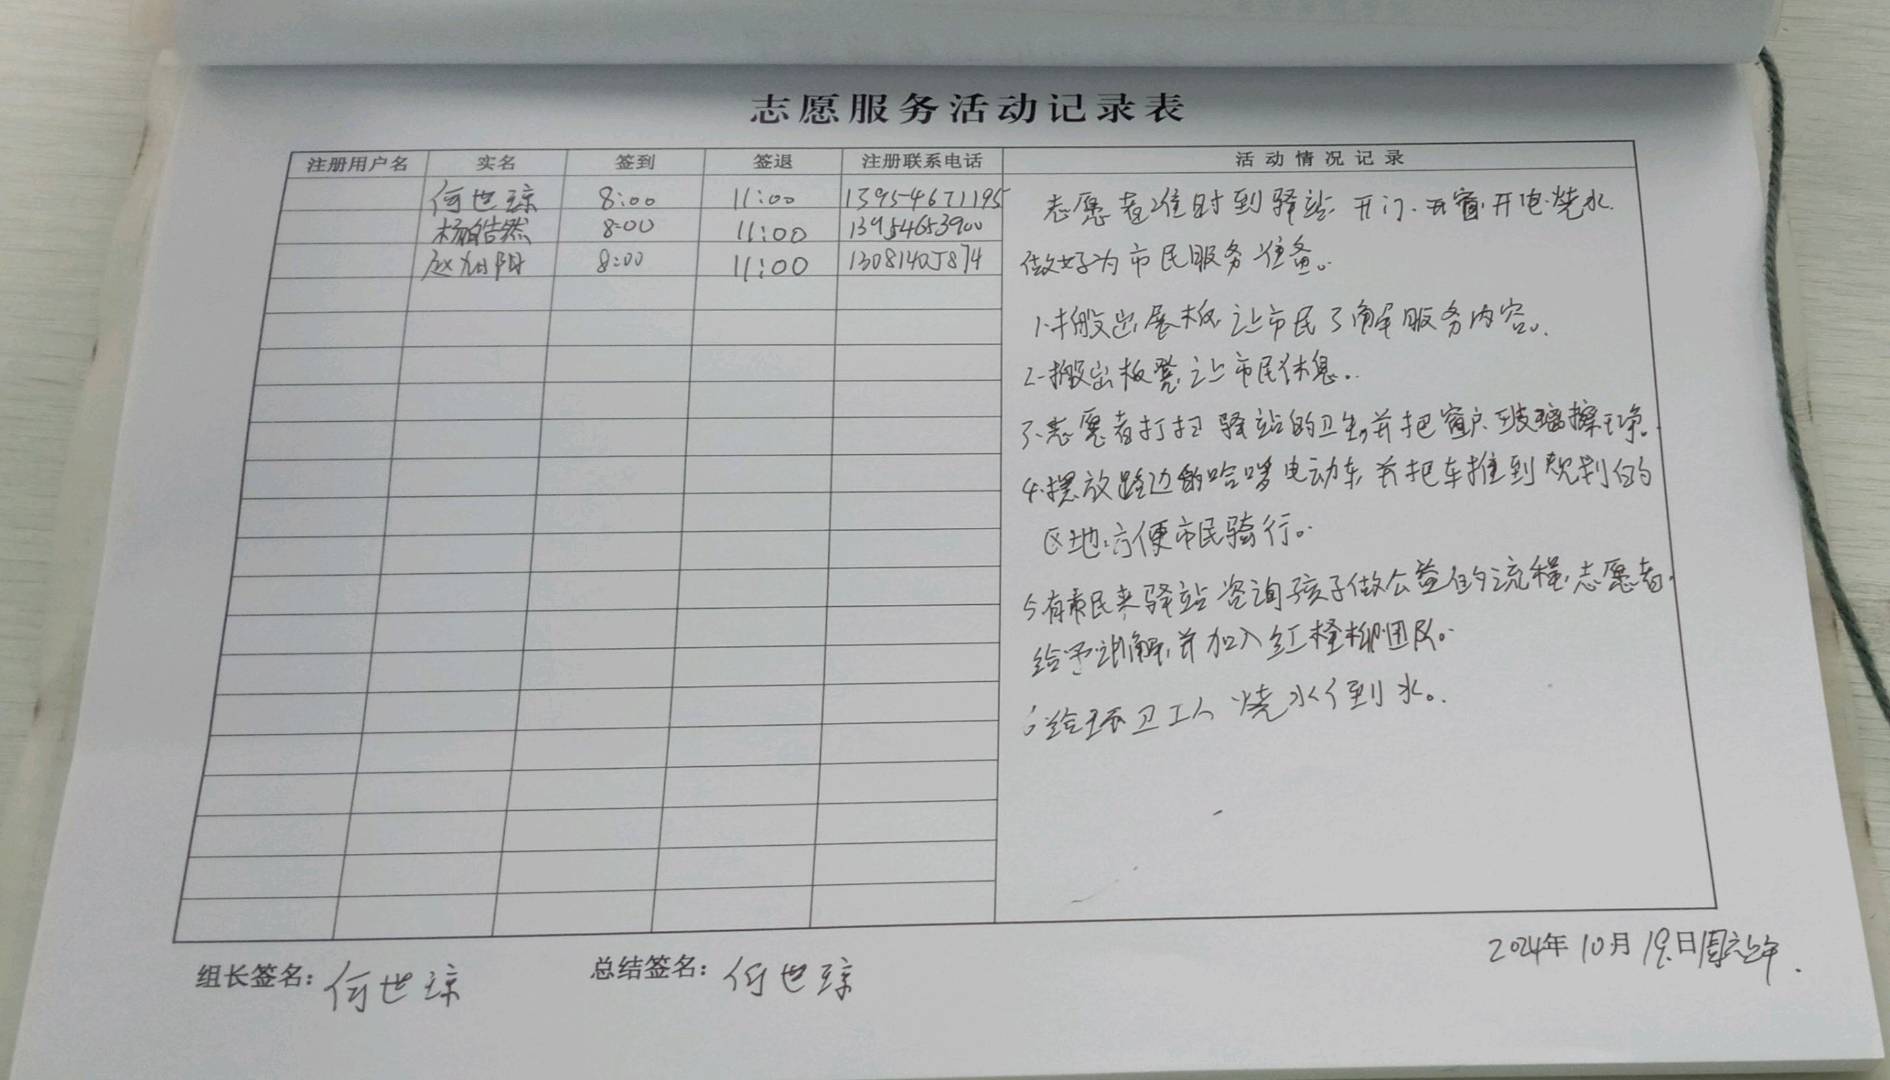 志愿服务活动记录表
注册用户名 实名 签到 签退 注册联系电话 活动情况记录
何世琼 8:00 11:00 13954671195
杨皓然 8:00 11:00 13954653900
赵旭阳 8:00 11:00 13081405874
志愿者准时到驿站,开门.开窗.开电.烧水.
做好为市民服务准备。
1.搬出展板,让市民了解服务内容。
2.搬出板凳,让市民休息。
3.志愿者打扫驿站的卫生,并把窗户玻璃擦干净.
4.摆放路边的哈啰电动车,并把车推到规划的
区地,方便市民骑行。
5.有市民来驿站咨询孩子做公益的流程,志愿者
给予讲解,并加入红柽柳团队。
6.给环卫工人烧水倒水。
组长签名:何世琼 总结签名:何世琼
2024年10月19日周六上午.